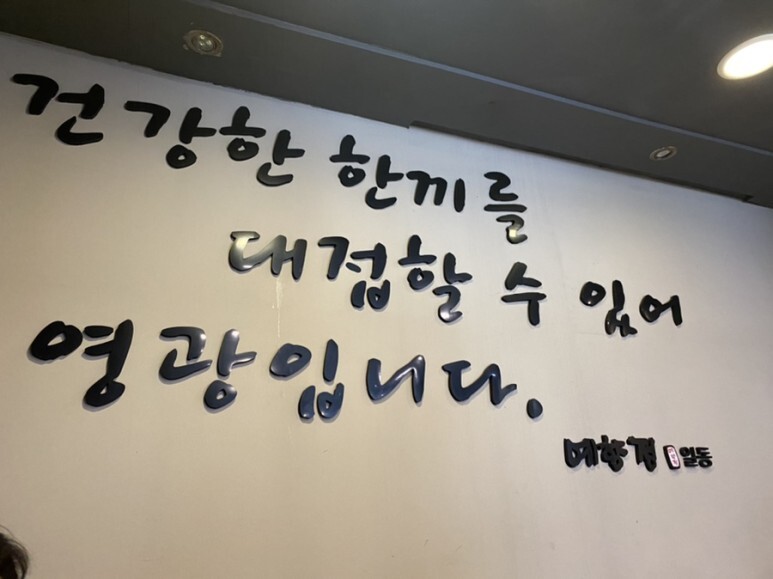 건강한 한끼를
대접할 수 있어
영광입니다.
예향정 일동